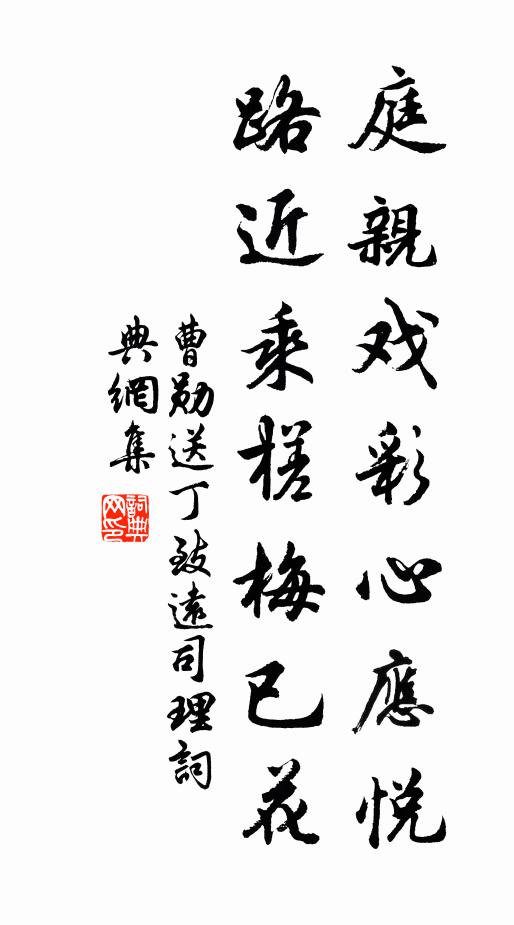 庭親戏彩心應悦
路近乘槎梅已花
曹勛送丁致遠司理詞
典網集
詞典
网印